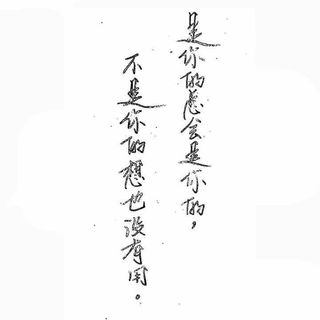 是你的总会是你的，
不是你的想也没有用。